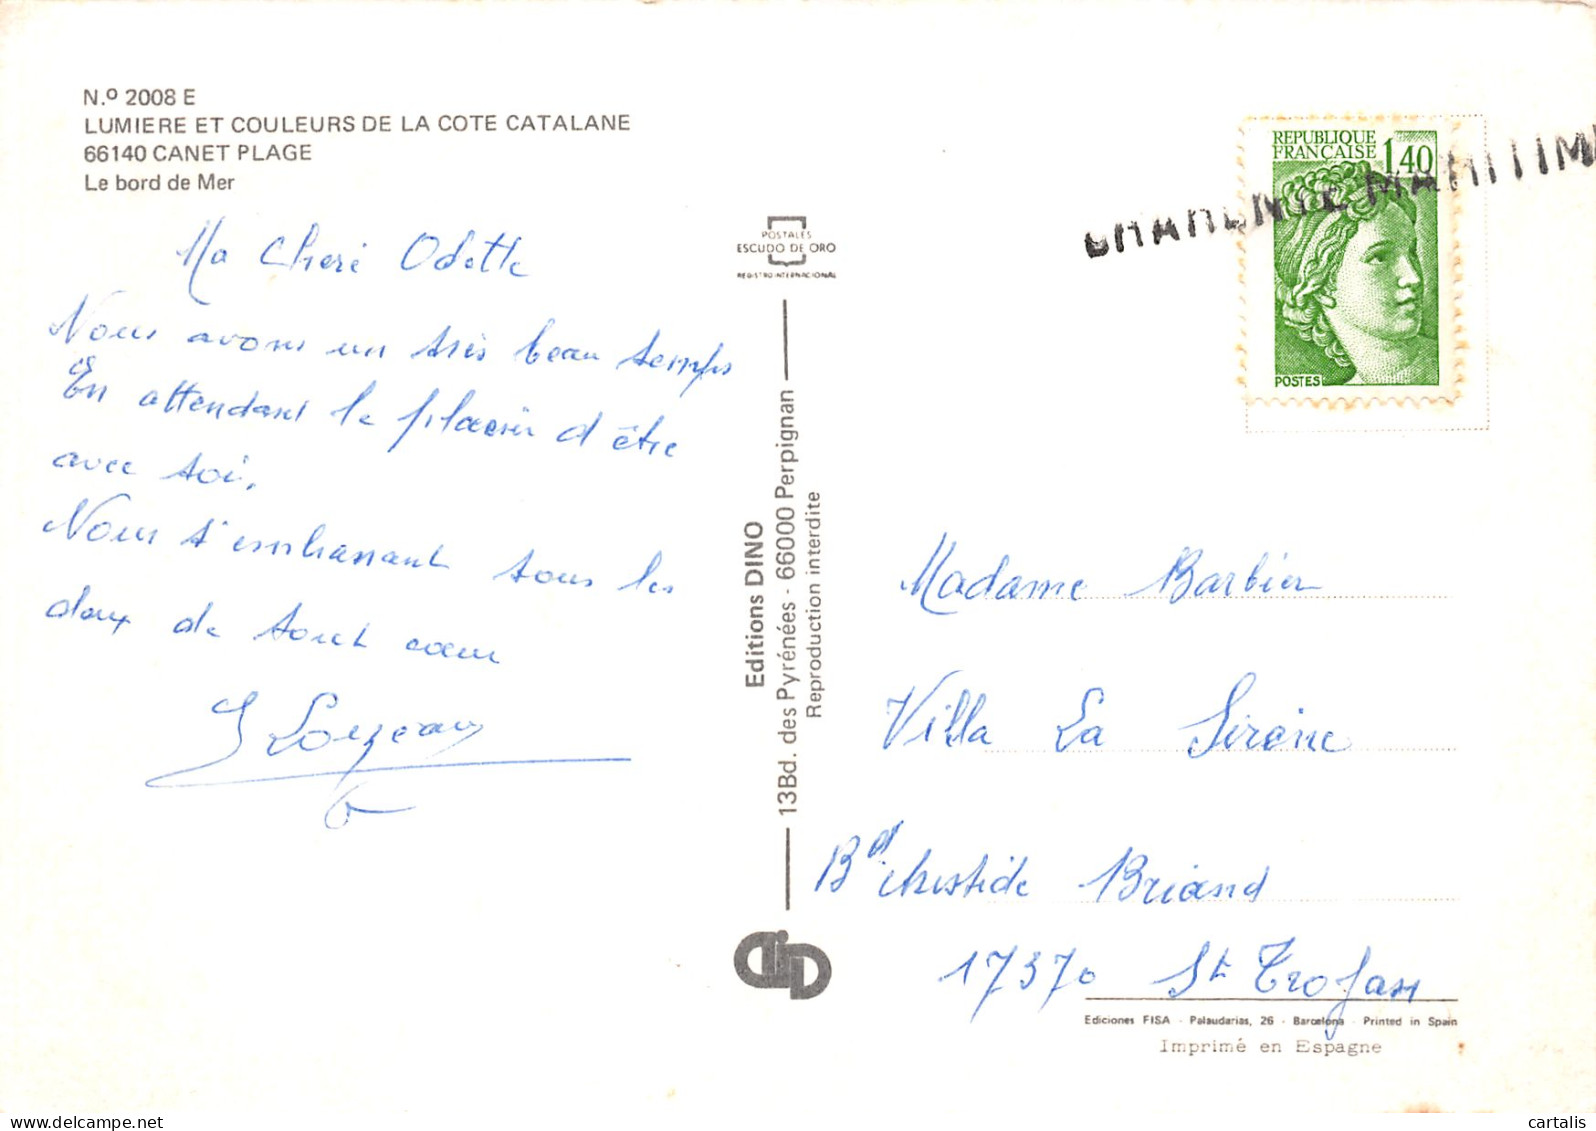 N.º 2008 E
LUMIERE ET COULEURS DE LA COTE CATALANE
66140 CANET PLAGE
Le bord de Mer
Ma Cheré Odette
Nous avons un très beau temps
En attendant le plaisir d'être
avec toi.
Nous t'embrassant tous les
deux de tout cœur
POSTALES
ESCUDO DE ORO
REGISTRO INTERNACIONAL
Editions DINO
13Bd. des Pyrénées - 66000 Perpignan
Reproduction interdite
REPUBLIQUE
FRANÇAISE 1,40
POSTES
CHARENTE MARITIM
Madame Barbier
Villa La Sirène
Bd Aristide Briand
17370 St Trojan
Ediciones FISA - Palaudarias, 26 - Barcelona - Printed in Spain
Imprimé en Espagne
cartalis